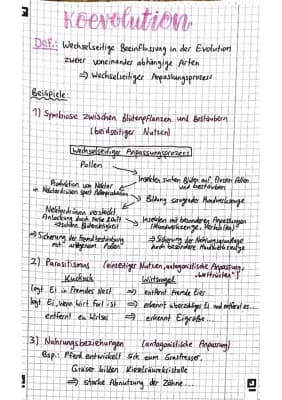 Koevolution
Def.: Wechselseitige Beeinflussung in der Evolution
zweier voneinander abhängige Arten
⇒ Wechselseitiger Anpassungsprozess
Beispiele:
1) Symbiose zwischen Blütenpflanzen und Bestäubern
(beidseitiger Nutzen)
Wechselseitiger Anpassungsprozess
Pollen
Insekten suchen Blüten auf, fressen Pollen
und bestäuben
Produktion von Nektar
in Nektardrüsen spart Pollenproduktion
Bildung saugender Mundwerkzeuge
Nektardrüsen versteckt
Anlockung durch Farbe, Duft
Insekten mit besonderen Anpassungen
(Mundwerkzeuge, Verhalten)
⇒ Sicherung der Fremdbestäubung
mit arteigenem Pollen
⇒ Sicherung der Nahrungsgrundlage
durch besondere Mundwerkzeuge
2) Parasitismus (einseitiger Nutzen, antagonistische Anpassung,
"Wettrüsten")
Kuckuck Wirtsvogel
legt Ei in fremdes Nest ⇒ entfernt fremde Eier
legt Ei, wenn Wirt fort ist ⇒ erkennt überzähliges Ei und entfernt es
entfernt ein Wirtsei ⇒ erkennt Eigröße...
3) Nahrungsbeziehungen (antagonistische Anpassung)
Bsp.: Pferd entwickelt sich zum Grasfresser,
Gräser bilden Kieselsäurekristalle
⇒ starke Abnutzung der Zähne...